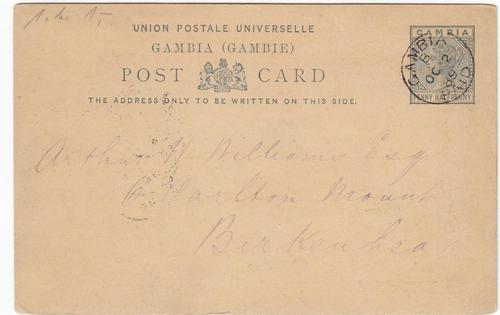 UNION POSTALE UNIVERSELLE
GAMBIA (GAMBIE)
POST CARD
THE ADDRESS ONLY TO BE WRITTEN ON THIS SIDE.
GAMBIA
PENNY HALFPENNY
GAMBIA
B
OC 2
89
Arthur W. Williams Esq
6 Carlton Mount
Birkenhead